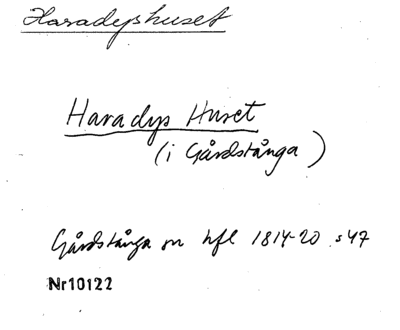 Haradyshuset
Haradys Huset
(i Gårdstånga)
Gårdstånga sn hfl 1814-20 s 47
Nr10122